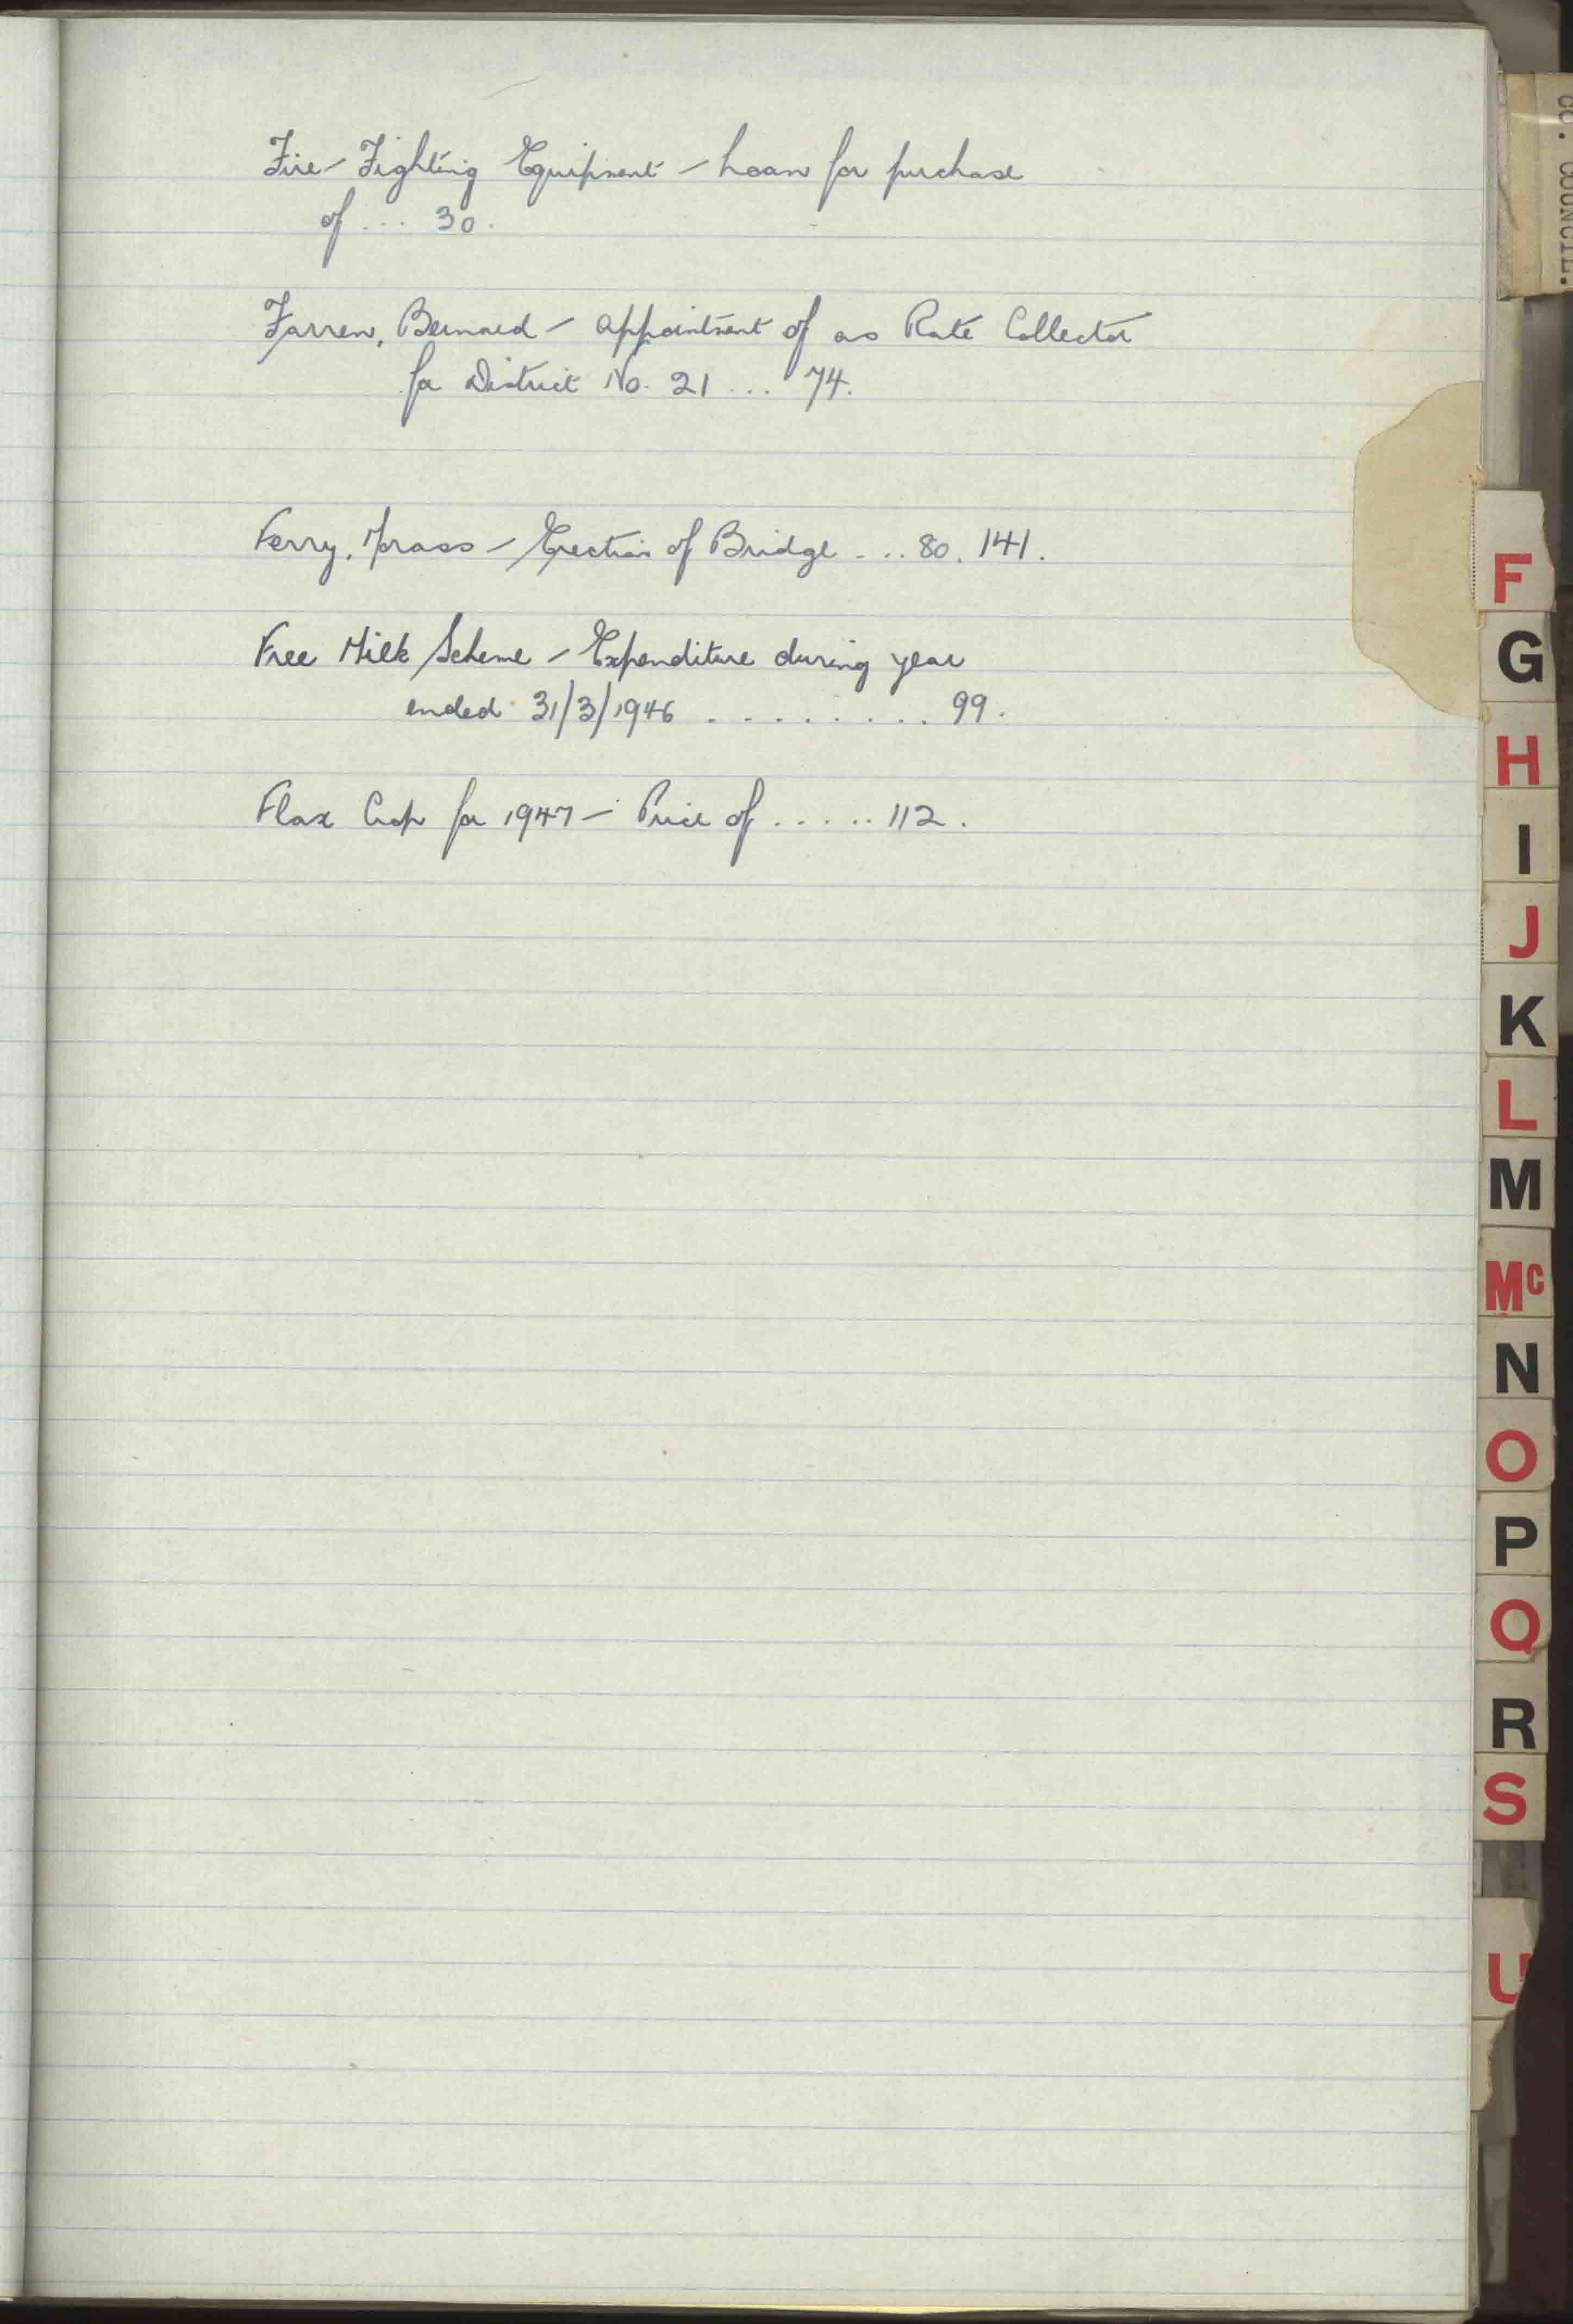 Fire-Fighting Equipment - Loan for purchase
of ... 30.
Farren, Bernard - Appointment of as Rate Collector
for District No. 21 ... 74.
Ferry, Mrass - Erection of Bridge ... 80. 141.
Free Milk Scheme - Expenditure during year
ended 31/3/1946 ......... 99.
Flax Crop for 1947 - Price of ..... 112.
CO. COUNCIL.
F
G
H
I
J
K
L
M
Mc
N
O
P
Q
R
S
U